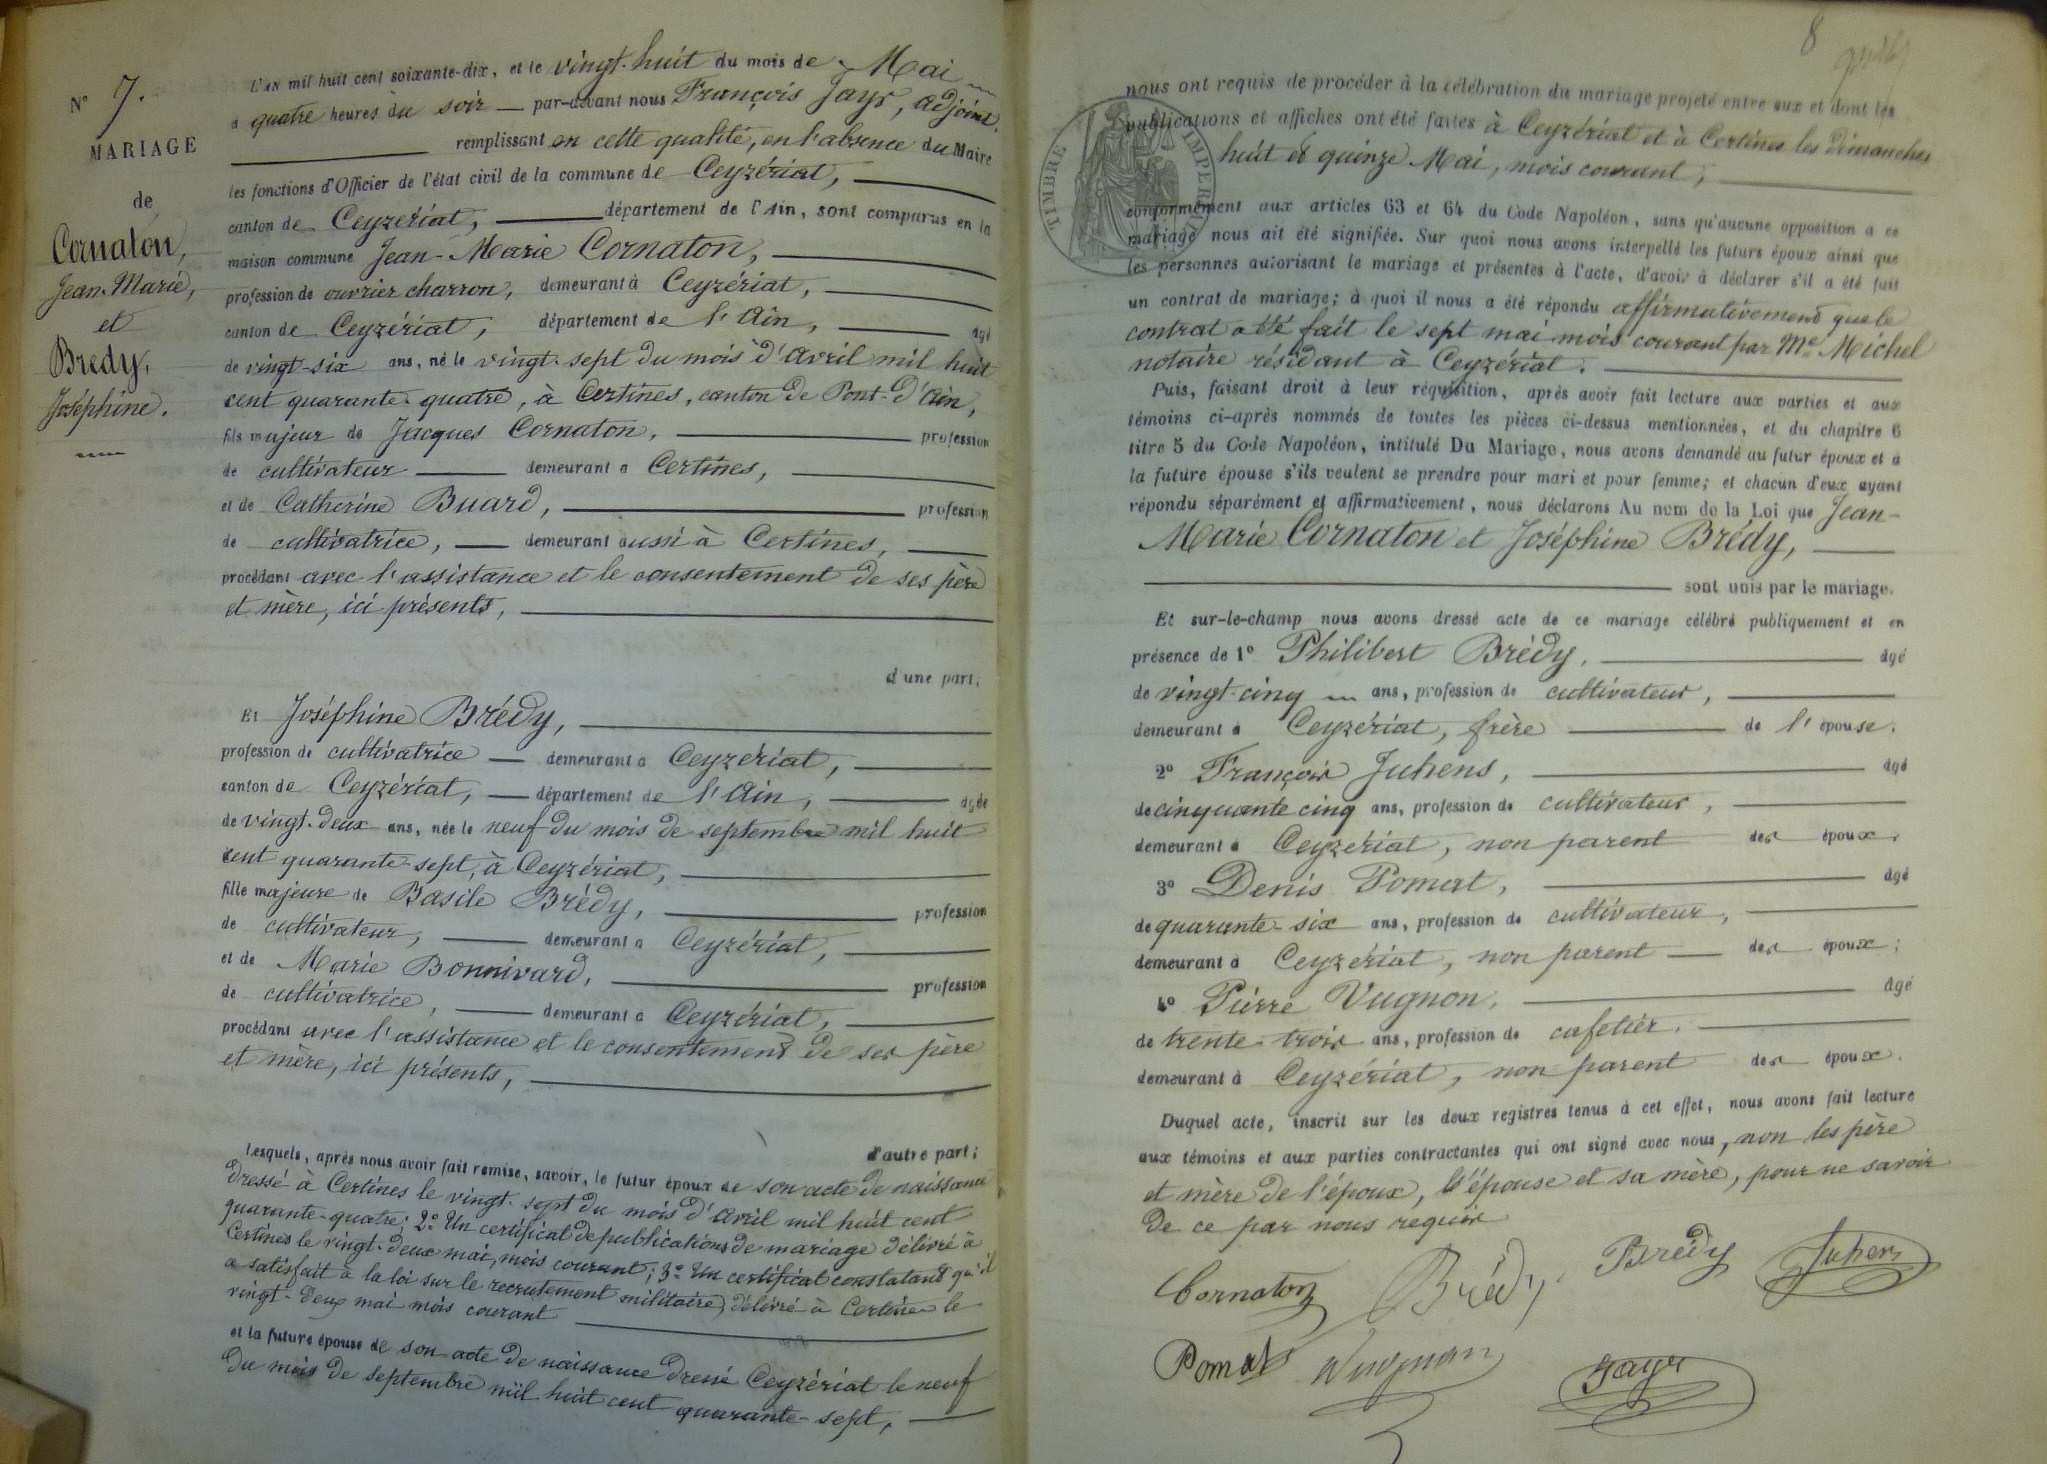 N° 7.
MARIAGE
de
Cornaton,
Jean-Marie,
et
Brédy,
Joséphine.
L'AN mil huit cent soixante-dix, et le vingt-huit du mois de Mai
a quatre heures du soir par-devant nous François Jayr, adjoint,
remplissant en cette qualité, en l'absence du Maire
les fonctions d'Officier de l'état civil de la commune de Ceyzériat,
canton de Ceyzériat, département de l'Ain, sont comparus en la
maison commune Jean-Marie Cornaton,
profession de ouvrier charron, demeurant à Ceyzériat,
canton de Ceyzériat, département de l'Ain, âgé
de vingt-six ans, né le vingt-sept du mois d'avril mil huit
cent quarante-quatre, à Certines, canton de Pont-d'Ain,
fils majeur de Jacques Cornaton, profession
de cultivateur demeurant a Certines,
et de Catherine Buard, profession
de cultivatrice, demeurant aussi à Certines,
procédant avec l'assistance et le consentement de ses père
et mère, ici présents,
d'une part;
Et Joséphine Brédy,
profession de cultivatrice demeurant a Ceyzériat,
canton de Ceyzériat, département de l'Ain, âgée
de vingt-deux ans, née le neuf du mois de septembre mil huit
cent quarante-sept, à Ceyzériat,
fille majeure de Basile Brédy, profession
de cultivateur, demeurant a Ceyzériat,
et de Marie Bonnivard, profession
de cultivatrice, demeurant a Ceyzériat,
procédant avec l'assistance et le consentement de ses père
et mère, ici présents,
d'autre part;
Lesquels, après nous avoir fait remise, savoir, le futur époux de son acte de naissance
dressé à Certines le vingt-sept du mois d'avril mil huit cent
quarante-quatre; 2° Un certificat de publications de mariage délivré à
Certines le vingt-deux mai, mois courant; 3° Un certificat constatant qu'il
a satisfait à la loi sur le recrutement militaire, délivré à Certines le
vingt-deux mai mois courant
et la future épouse de son acte de naissance dressé Ceyzériat le neuf
du mois de septembre mil huit cent quarante-sept,
8
nous ont requis de procéder à la célébration du mariage projeté entre eux et dont les
publications et affiches ont été faites à Ceyzériat et à Certines les dimanches
huit et quinze Mai, mois courant,
TIMBRE IMPERIAL
conformément aux articles 63 et 64 du Code Napoléon, sans qu'aucune opposition a ce
mariage nous ait été signifiée. Sur quoi nous avons interpellé les futurs époux ainsi que
les personnes autorisant le mariage et présentes à l'acte, d'avoir à déclarer s'il a été fait
un contrat de mariage; à quoi il nous a été répondu affirmativement que le
contrat a été fait le sept mai mois courant par Me Michel
notaire résidant à Ceyzériat.
Puis, faisant droit à leur réquisition, après avoir fait lecture aux parties et aux
témoins ci-après nommés de toutes les pièces ci-dessus mentionnées, et du chapitre 6
titre 5 du Code Napoléon, intitulé Du Mariage, nous avons demandé au futur époux et à
la future épouse s'ils veulent se prendre pour mari et pour femme; et chacun d'eux ayant
répondu séparément et affirmativement, nous déclarons Au nom de la Loi que Jean-
Marie Cornaton et Joséphine Brédy,
sont unis par le mariage.
Et sur-le-champ nous avons dressé acte de ce mariage célébré publiquement et en
présence de 1° Philibert Brédy, âgé
de vingt-cinq ans, profession de cultivateur,
demeurant à Ceyzériat, frère de l'épouse.
2° François Juhens, âgé
de cinquante cinq ans, profession de cultivateur,
demeurant à Ceyzériat, non parent des époux.
3° Denis Pomat, âgé
de quarante-six ans, profession de cultivateur,
demeurant à Ceyzériat, non parent des époux;
4° Pierre Vugnon, âgé
de trente-trois ans, profession de cafetier.
demeurant à Ceyzériat, non parent des époux.
Duquel acte, inscrit sur les deux registres tenus à cet effet, nous avons fait lecture
aux témoins et aux parties contractantes qui ont signé avec nous, non les père
et mère de l'époux, l'épouse et sa mère, pour ne savoir
de ce par nous requis
Cornaton Brédy Brédy Juhens
Pomat Vugnon Jayr